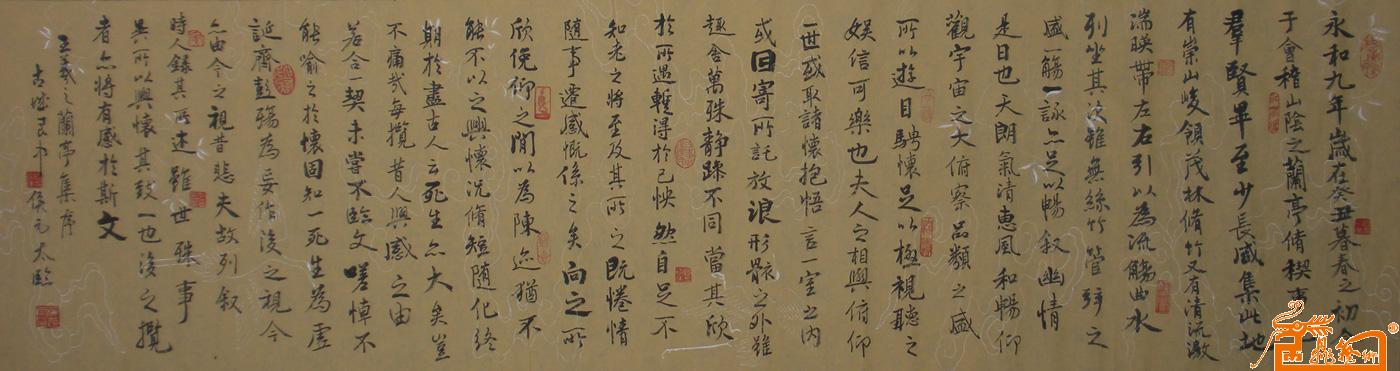 永和九年歲在癸丑暮春之初會
于會稽山陰之蘭亭脩禊事
羣賢畢至少長咸集此地
有崇山峻領茂林脩竹又有清流激
湍暎帶左右引以為流觴曲水
列坐其次雖無絲竹管弦之
盛一觴一詠亦足以暢叙幽情
是日也天朗氣清惠風和暢仰
觀宇宙之大俯察品類之盛
所以遊目騁懷足以極視聽之
娛信可樂也夫人之相與俯仰
一世或取諸懷抱悟言一室之內
或因寄所託放浪形骸之外雖
趣舍萬殊静躁不同當其欣
於所遇暫得於己怏然自足不
知老之將至及其所之既惓情
隨事遷感慨係之矣向之所
欣俛仰之間以為陳迹猶不
能不以之興懷況脩短隨化終
期於盡古人云死生亦大矣豈
不痛哉每攬昔人興感之由
若合一契未嘗不臨文嗟悼不
能喻之於懷固知一死生為虛
誕齊彭殤為妄作後之視今
亦由今之視昔悲夫故列叙
時人錄其所述雖世殊事
異所以興懷其致一也後之攬
者亦將有感於斯文
王羲之蘭亭集序
古城 侯元太臨